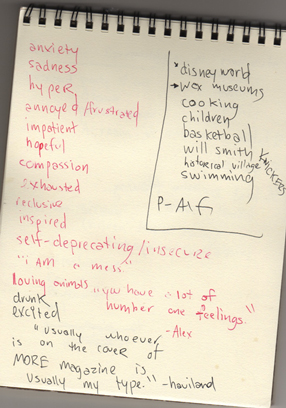 anxiety
sadness
hyper
annoyed/frustrated
impatient
hopeful
compassion
exhausted
reclusive
inspired
self-deprecating/insecure
"i am a mess."
loving animals "you have a lot of
number one feelings."
-Alex
drunk
excited
"usually whoever
is on the cover of
MORE magazine is
usually my type." -haviland
disneyworld
wax museums
cooking
children
basketball
will smith
historical village
KNICKERS
swimming
P-